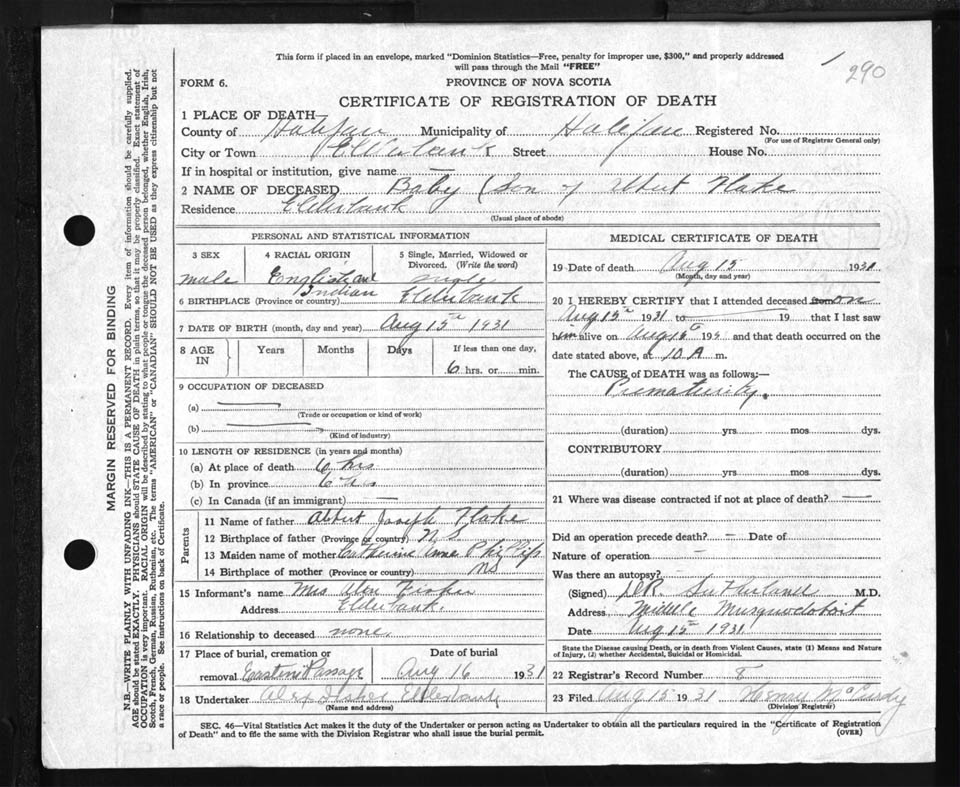 This form if placed in an envelope, marked "Dominion Statistics—Free, penalty for improper use, $300," and properly addressed
will pass through the Mail "FREE"
290
FORM 6.
PROVINCE OF NOVA SCOTIA
CERTIFICATE OF REGISTRATION OF DEATH
1 PLACE OF DEATH—
County of Halifax Municipality of Halifax Registered No.
(For use of Registrar General only)
City or Town Elderbank Street House No.
If in hospital or institution, give name —
2 NAME OF DECEASED Baby (Son of Albert Flake
Residence Elderbank
(Usual place of abode)
PERSONAL AND STATISTICAL INFORMATION
3 SEX 4 RACIAL ORIGIN 5 Single, Married, Widowed or
Divorced. (Write the word)
male English and single
Indian
6 BIRTHPLACE (Province or country) Elderbank
7 DATE OF BIRTH (month, day and year) Aug 15th 1931
8 AGE IN Years Months Days If less than one day,
6 hrs. or min.
9 OCCUPATION OF DECEASED
(a)
(Trade or occupation or kind of work)
(b)
(Kind of industry)
10 LENGTH OF RESIDENCE (in years and months)
(a) At place of death 6 hrs
(b) In province 6 hrs
(c) In Canada (if an immigrant) —
Parents
11 Name of father Albert Joseph Flake
12 Birthplace of father (Province or country) N.S.
13 Maiden name of mother Catherine Anne Phillips
14 Birthplace of mother (Province or country) NS
15 Informant's name Mrs
Address Elderbank.
16 Relationship to deceased none.
17 Place of burial, cremation or Date of burial
removal Eastern Passage Aug 16 1931
18 Undertaker Elderbank
(Name and address)
MEDICAL CERTIFICATE OF DEATH
19 Date of death Aug 15 1931
(Month, day and year)
20 I HEREBY CERTIFY that I attended deceased on
Aug 15th 1931 to 19 that I last saw
him alive on Aug 15th 193 and that death occurred on the
date stated above, at 10 A m.
The CAUSE of DEATH was as follows:—
Prematurity.
(duration) yrs mos dys.
CONTRIBUTORY
(duration) yrs mos dys.
21 Where was disease contracted if not at place of death? —
Did an operation precede death? — Date of
Nature of operation —
Was there an autopsy? —
(Signed) D.R. Sutherland M.D.
Address Middle Musquodoboit
Date Aug 15th 1931
State the Disease causing Death, or in death from Violent Causes, state (1) Means and Nature
of Injury, (2) whether Accidental, Suicidal or Homicidal.
22 Registrar's Record Number 8
23 Filed Aug 15 1931 McCurdy
(Division Registrar)
SEC. 46—Vital Statistics Act makes it the duty of the Undertaker or person acting as Undertaker to obtain all the particulars required in the "Certificate of Registration
of Death" and to file the same with the Division Registrar who shall issue the burial permit.
(OVER)
MARGIN RESERVED FOR BINDING
N.B.—WRITE PLAINLY WITH UNFADING INK—THIS IS A PERMANENT RECORD. Every item of information should be carefully supplied.
AGE should be stated EXACTLY. PHYSICIANS should STATE CAUSE OF DEATH in plain terms, so that it may be properly classified. Exact statement of
OCCUPATION is very important. RACIAL ORIGIN will be described by stating to what people or tongue the deceased person belonged, whether English, Irish,
Scotch, French, German, Russian, Ruthenian, etc. The terms "AMERICAN" or "CANADIAN" SHOULD NOT BE USED as they express citizenship but not
a race or people. See instructions on back of Certificate.